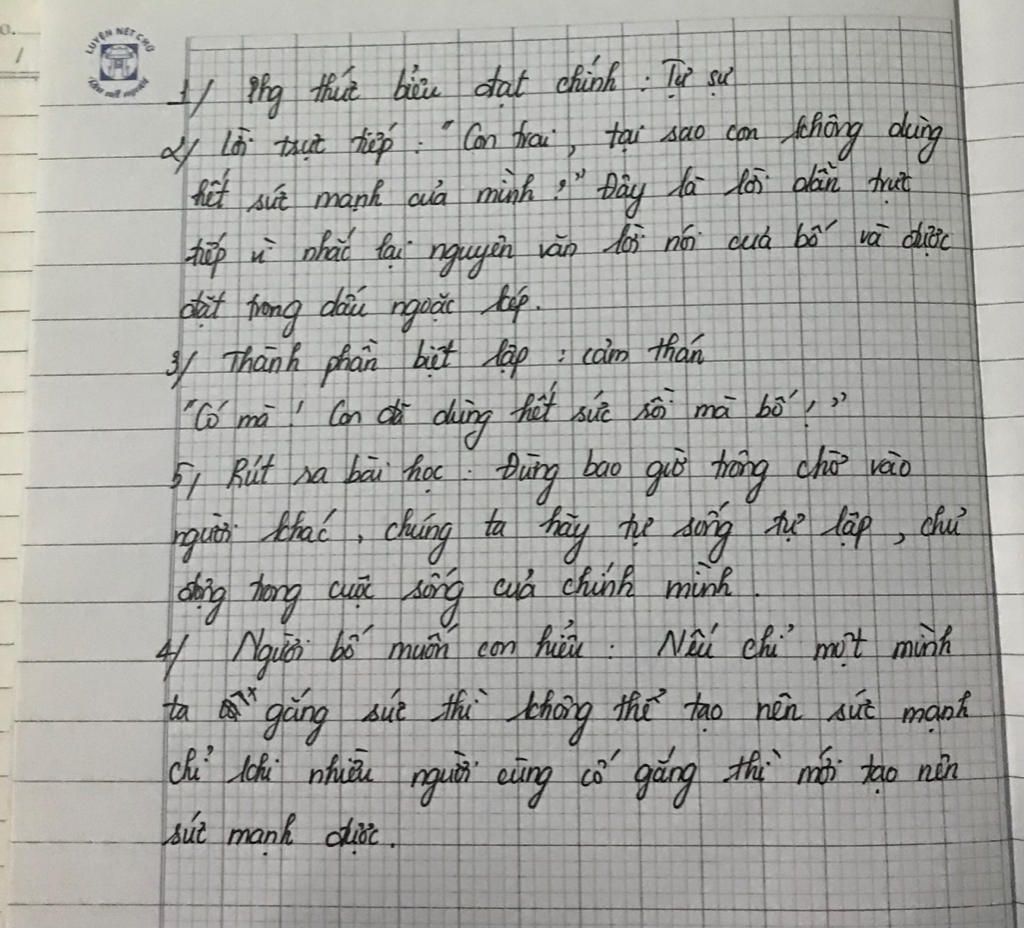 LUYỆN NÉT CHỮ
1/ Phg thức biểu đạt chính : Tự sự
2/ Lời trực tiếp : "Con trai, tại sao con không dùng
hết sức mạnh của mình ?" Đây là lời dẫn trực
tiếp vì nhắc lại nguyên văn lời nói của bố và được
đặt trong dấu ngoặc kép.
3/ Thành phần biệt lập : cảm thán
"Có mà ! Con đã dùng hết sức rồi mà bố !"
5/ Rút ra bài học : Đừng bao giờ trông chờ vào
người khác, chúng ta hãy tự sống tự lập, chủ
động trong cuộc sống của chính mình.
4/ Người bố muốn con hiểu : Nếu chỉ một mình
ta gắng sức thì không thể tạo nên sức mạnh
chỉ khi nhiều người cùng cố gắng thì mới tạo nên
sức mạnh được.